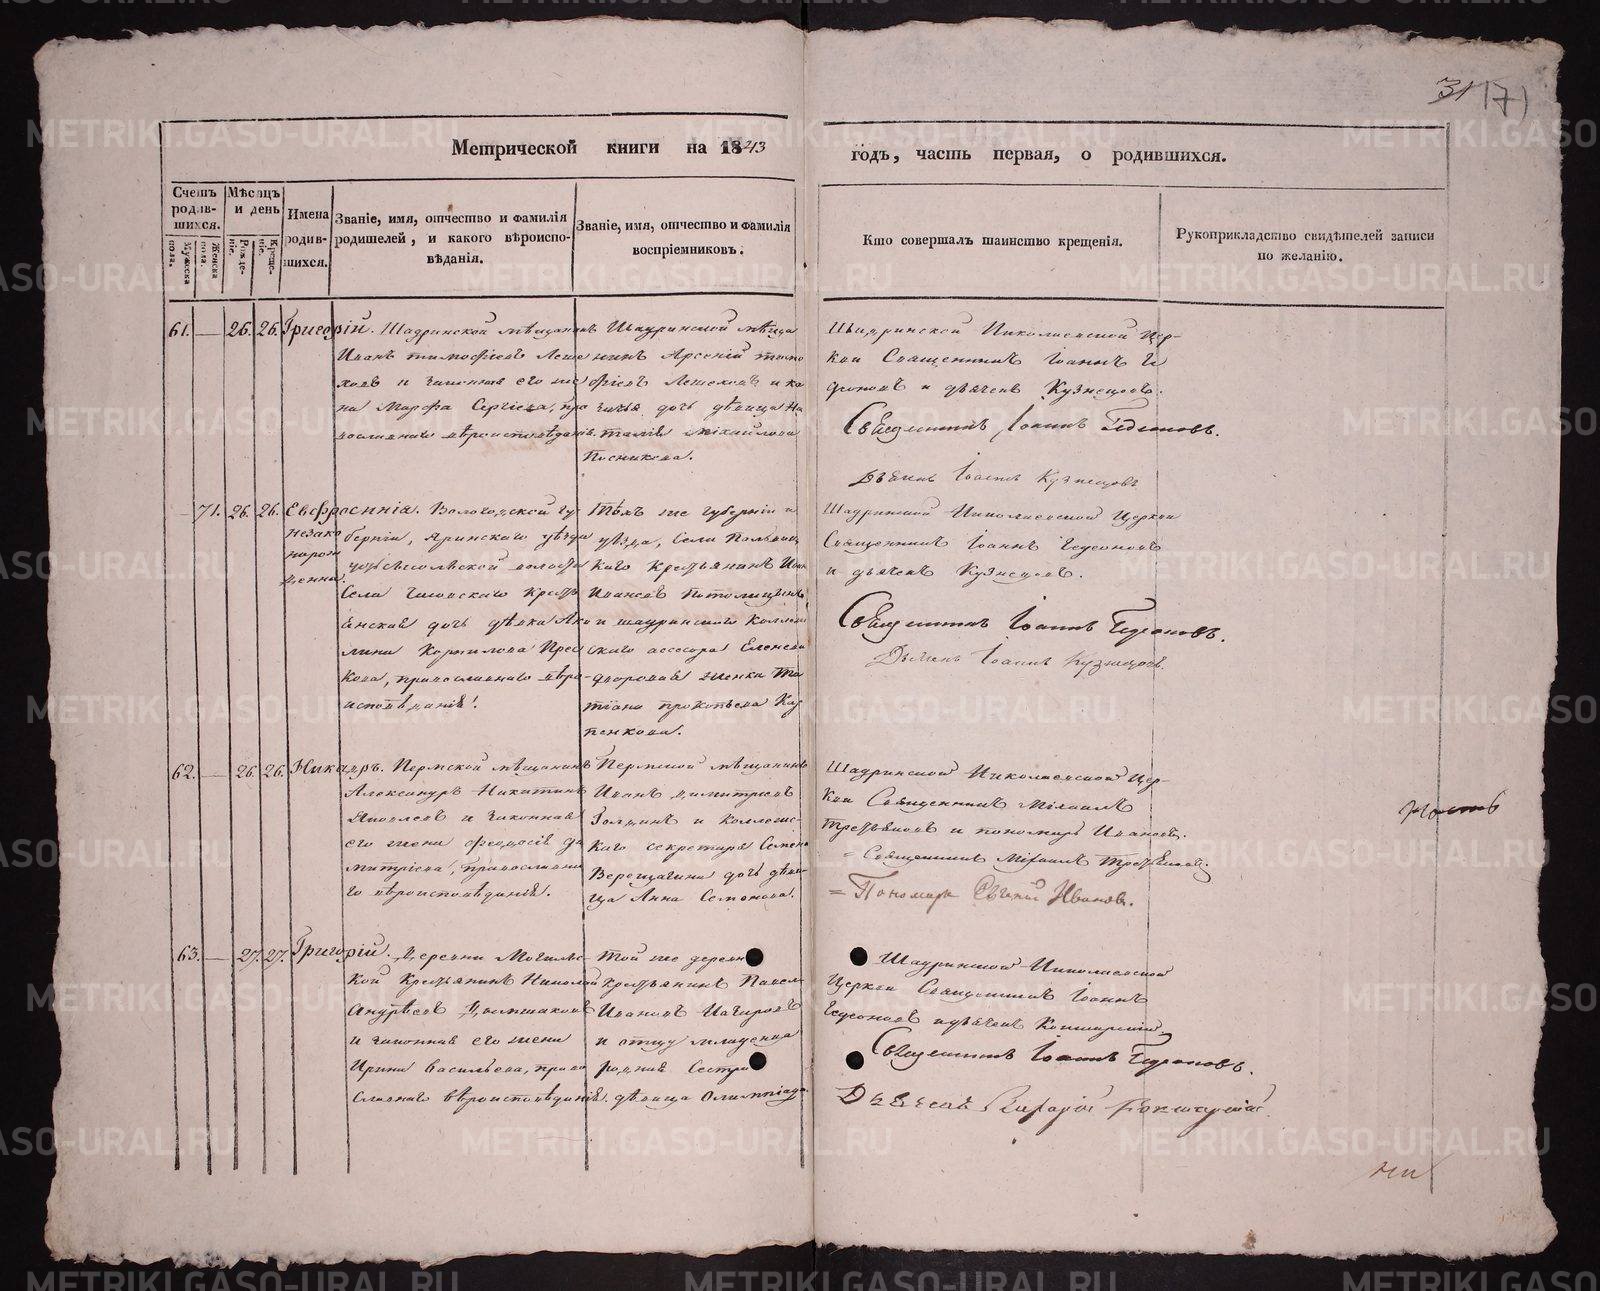 31 17)
Метрической книги на 1843 годъ, часть первая, о родившихся.
Счетъ родив-шихся.
Мужеска пола.
Женска пола.
Мѣсяцъ и день
Рожде-ніе.
Креще-ніе.
Имена родив-шихся.
Званіе, имя, отчество и фамилія
родителей, и какого вѣроиспо-
вѣданія.
Званіе, имя, отчество и фамилія
воспріемниковъ.
Кто совершалъ таинство крещенія.
Рукоприкладство свидѣтелей записи
по желанію.
61. — 26. 26. Григорій.
Шадринской мѣщанинъ
Иванъ Тимофѣевъ Леше
ховъ и законная его же
на Марфа Сергіева, пра
вославнаго вѣроисповѣданія.
Шадринской мѣща
нинъ Арсеній Тимо
фѣевъ Лешеховъ и ка
зачья дочь дѣвица На
талія Михайлова
Посникова.
Шадринской Николаевской Цер-
кви Священникъ Іоаннъ Ге
деоновъ и дьячекъ Кузнецовъ.
Священникъ Іоаннъ Гедеоновъ.
Дьячекъ Іоаннъ Кузнецовъ
— 71. 26. 26. Евфросинія.
незако
норож
денна.
Вологодской гу
берніи, Яринскаго уѣзда
волости
Села крестъ
янская дочь дѣвка Аку
лина Корнилова
кова, православнаго вѣро-
исповѣданія.
Тѣхъ же губерніи и
уѣзда, Села
каго Крестьянинъ Иванъ
Ивановъ
и шадринскаго Коллеж
скаго ассесора Еленева
дворовая женка Та
тіана Прокопьева Кар
пенкова.
Шадринской Николаевской Церкви
Священникъ Іоаннъ Гедеоновъ
и дьячекъ Кузнецовъ.
Священникъ Іоаннъ Гедеоновъ.
Дьячекъ Іоаннъ Кузнецовъ.
62. — 26. 26. Никандръ.
Пермской мѣщанинъ
Александръ Никитинъ
Яковлевъ и законная
его жена Феодосія Ди
митріева, православна
го вѣроисповѣданія.
Пермской мѣщанинъ
Иванъ Димитріевъ
и Коллежс-
каго секретаря Семена
Верещагина дочь дѣви
ца Анна Семенова.
Шадринской Николаевской Цер-
кви Священникъ Михаилъ
Третьяковъ и пономарь Ивановъ.
= Священникъ Михаилъ Третьяковъ.
= Пономарь Евгеній Ивановъ.
63. — 27. 27. Григорій.
Деревни
кой Крестьянинъ Николай
Андрѣевъ
и законная его жена
Ирина Васильева, право
славнаго вѣроисповѣданія.
Той же деревни
крестьянинъ Павелъ
Ивановъ
и отцу младенца
родная Сестра
дѣвица Олимпіада.
Шадринской Николаевской
Церкви Священникъ Іоаннъ
Гедеоновъ и дьячекъ
Священникъ Іоаннъ Гедеоновъ.
Дьячекъ